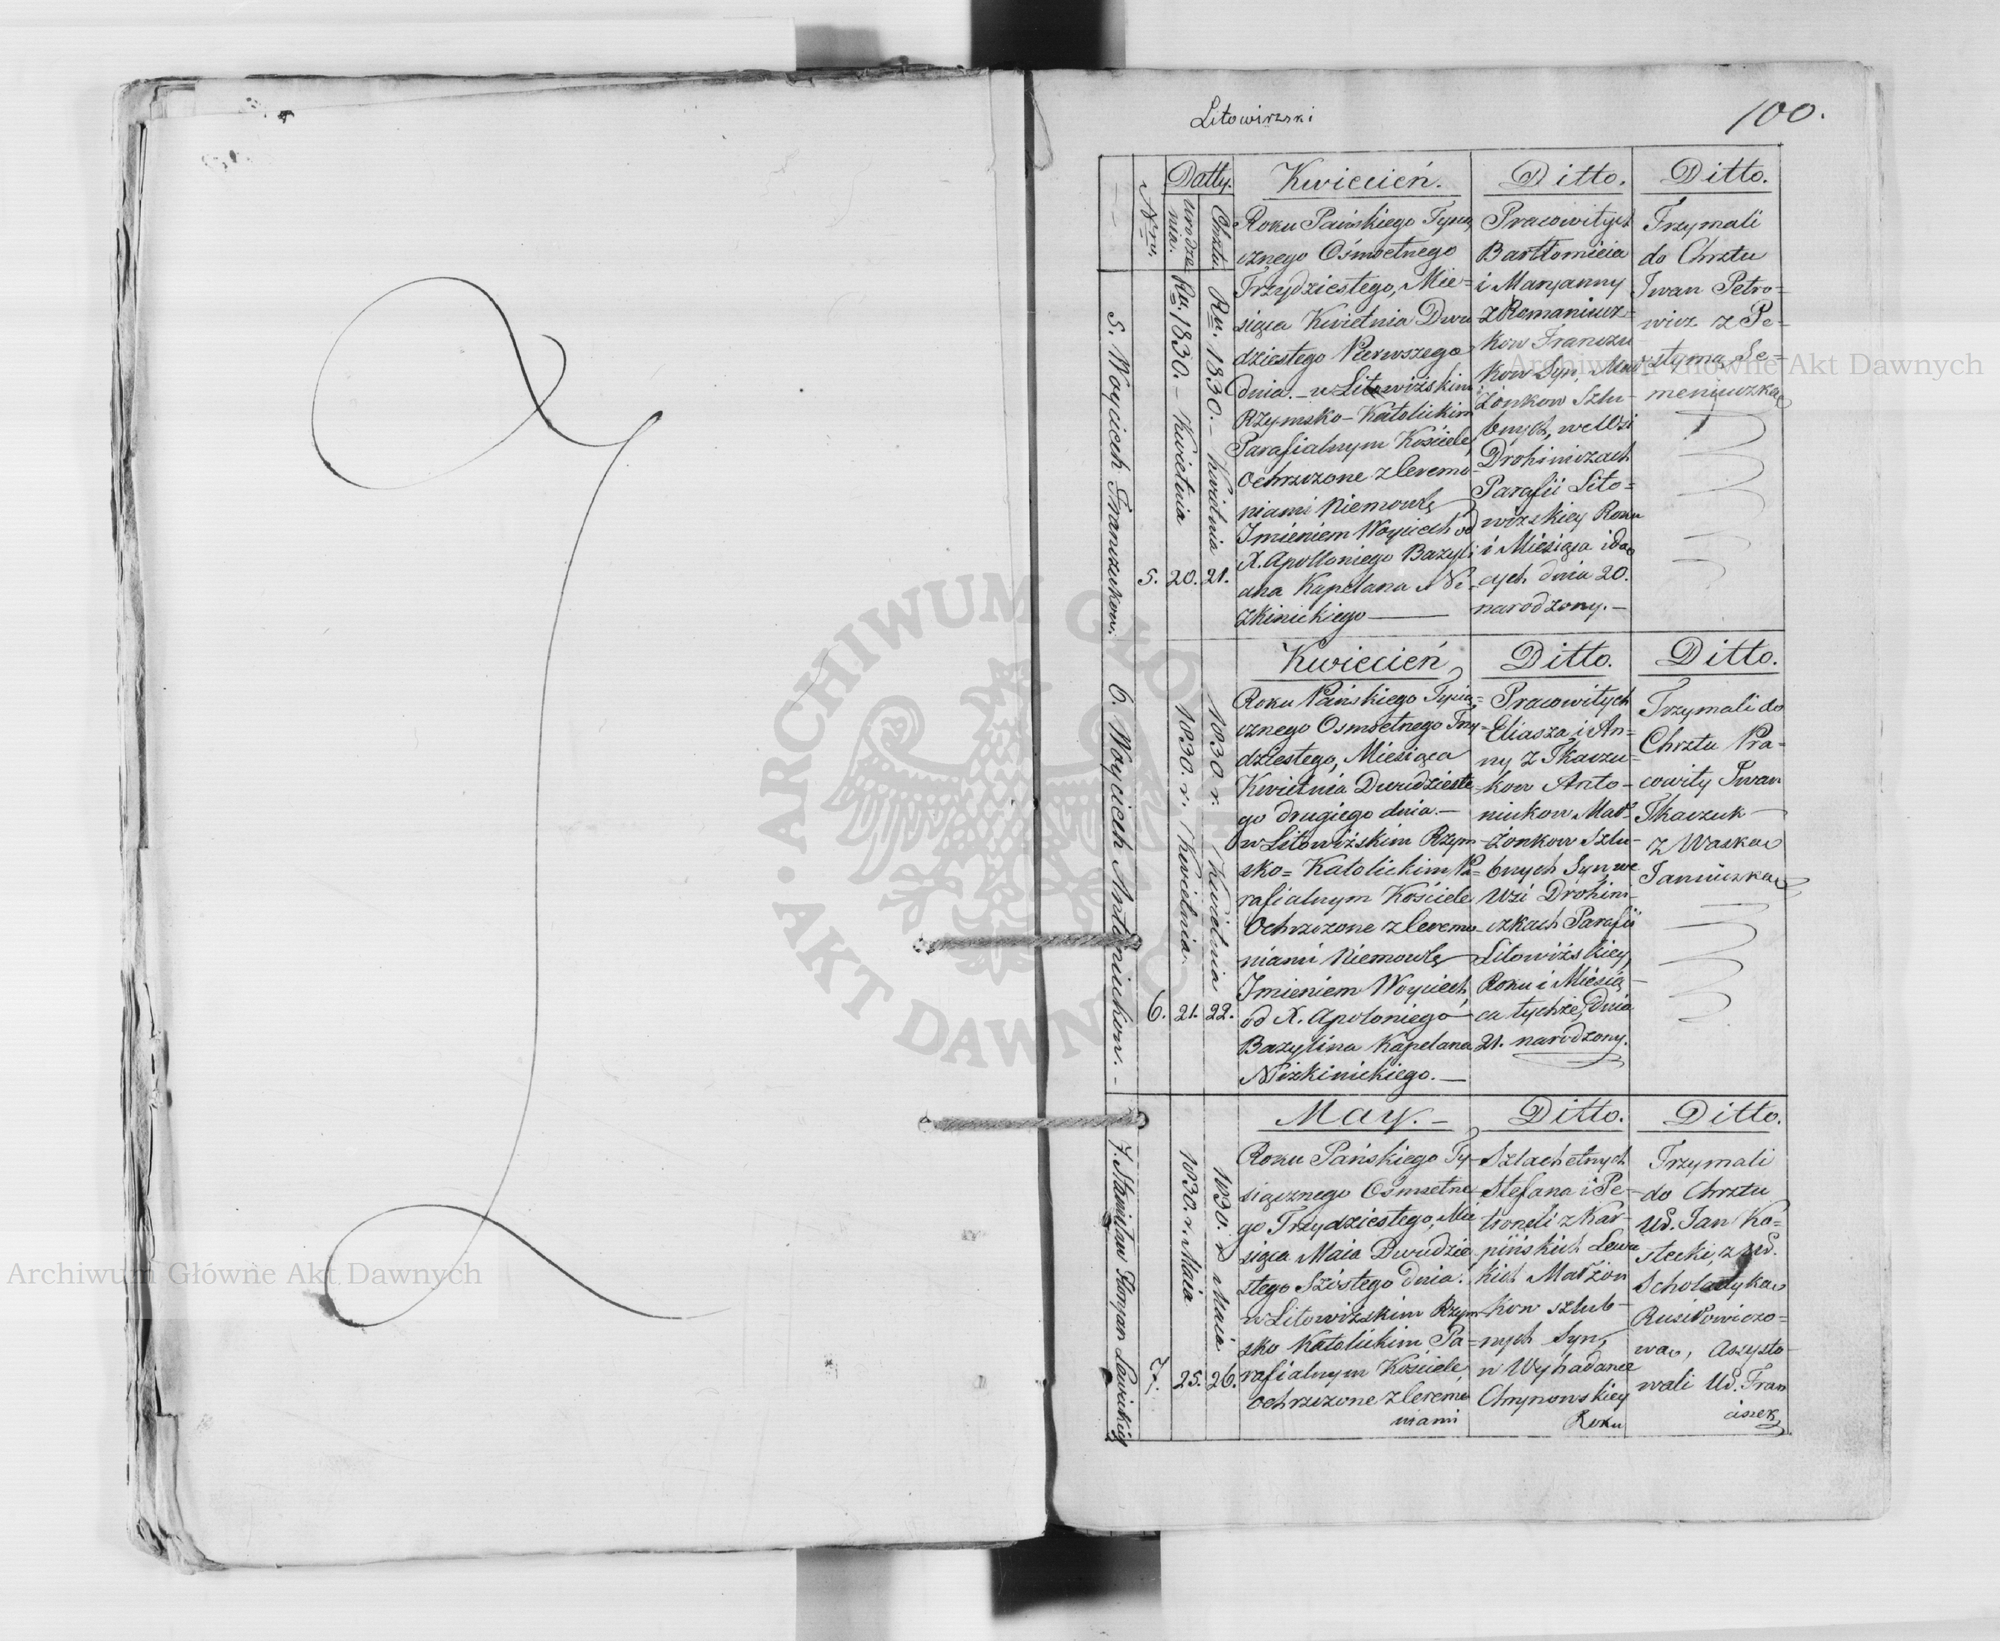 Litowizski
100.
Datty.
Nrw.
Urodze
nia.
Chrztu.
Kwiecień.
Ditto.
Ditto.
5. Woyciech Franczukow.
Ru. 1830. – Kwietnia
Ru. 1830. – Kwietnia
5.
20.
21.
Roku Pańskiego Tysią
cznego Ośmsetnego
Trzydziestego, Mie=
siąca Kwietnia Dwu
dziestego Pierwszego
dnia. – w Litowiżskim
Rzymsko-Katolickim
Parafialnym Kościele,
Ochrzczone z Ceremo-
niami Niemowlę
Imieniem Woyciech od
X. Apolloniego Bazyli
ana Kapelana Ni-
zkinickiego —
Pracowitych
Bartłomieia
i Maryanny
z Romaniucz-
kow Franczu
kow Syn, Mał
żonkow Szlu-
bnych, we Wsi
Drohiniczach
Parafii Lito=
wizskiey Roku
i Miesiąca idą
cych dnia 20.
narodzony. –
Trzymali
do Chrztu
Iwan Petro-
wicz z Pe-
styną Se-
meniuczką
Kwiecień
Ditto.
Ditto.
6. Woyciech Antoniukow. –
1830. r. Kwietnia.
1830. r. Kwietnia
6.
21.
22.
Roku Pańskiego Tysią=
cznego Osmsetnego Trzy-
dziestego, Miesiąca
Kwietnia Dwudzieste
go drugiego dnia. –
w Litowiżskim Rzym
sko= Katolickim Pa=
rafialnym Kościele
Ochrzczone z Ceremo-
niami Niemowlę
Imieniem Woyciech
od X. Apoloniego
Bazylina Kapelana
Nizkinickiego. —
Pracowitych
Eliasza i An-
ny z Tkaczu-
kow Anto-
niukow Mał-
żonkow Szlu-
bnych Syn we
Wsi Drohini-
czkach Parafii
Litowiżskiey,
Roku i Miesią-
ca tychże, Dnia
21. narodzony.
Trzymali do
Chrztu Pra-
cowity Iwan
Tkaczuk –
z Waską
Janiuczką
May. –
Ditto.
Ditto.
7. Stanisław Floryan Lewickiy
1830. r. Maia
1830. r. Maia
7.
25.
26.
Roku Pańskiego Ty-
siącznego Osmsetne
go Trzydziestego, Mie
siąca Maia Dwudzie
stego Szóstego Dnia.
w Litowiżskim Rzym
sko Katolickim Pa=
rafialnym Kościele,
ochrzczone z Ceremo
niami
Szlachetnych
Stefana i Pe-
troneli z Kar-
pińskich Lewic
kich Małżon
kow szlub-
nych Syn,
w Wyhadance
Chrynowskiey
Roku
Trzymali
do Chrztu
Ur. Jan Ko=
stecki, z Ur.
Scholastyką
Rusiłowiczo=
wą, Assysto-
wali Ur. Fran
ciszek
ARCHIWUM GŁÓWNE
AKT DAWNYCH
Archiwum Główne Akt Dawnych
Archiwum Główne Akt Dawnych